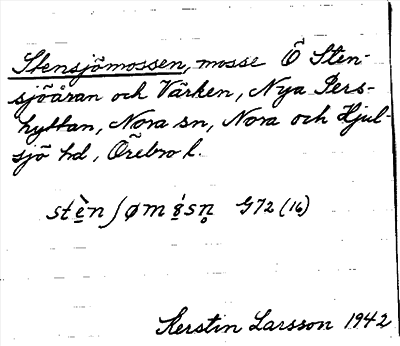 Stensjömossen, mosse Ö Sten-
sjöåran och Värken, Nya Pers-
hyttan, Nora sn, Nora och Hjul-
sjö hd, Örebro l.
stè̱nʃøm ɞ́sn̥ G72 (16)
Kerstin Larsson 1942